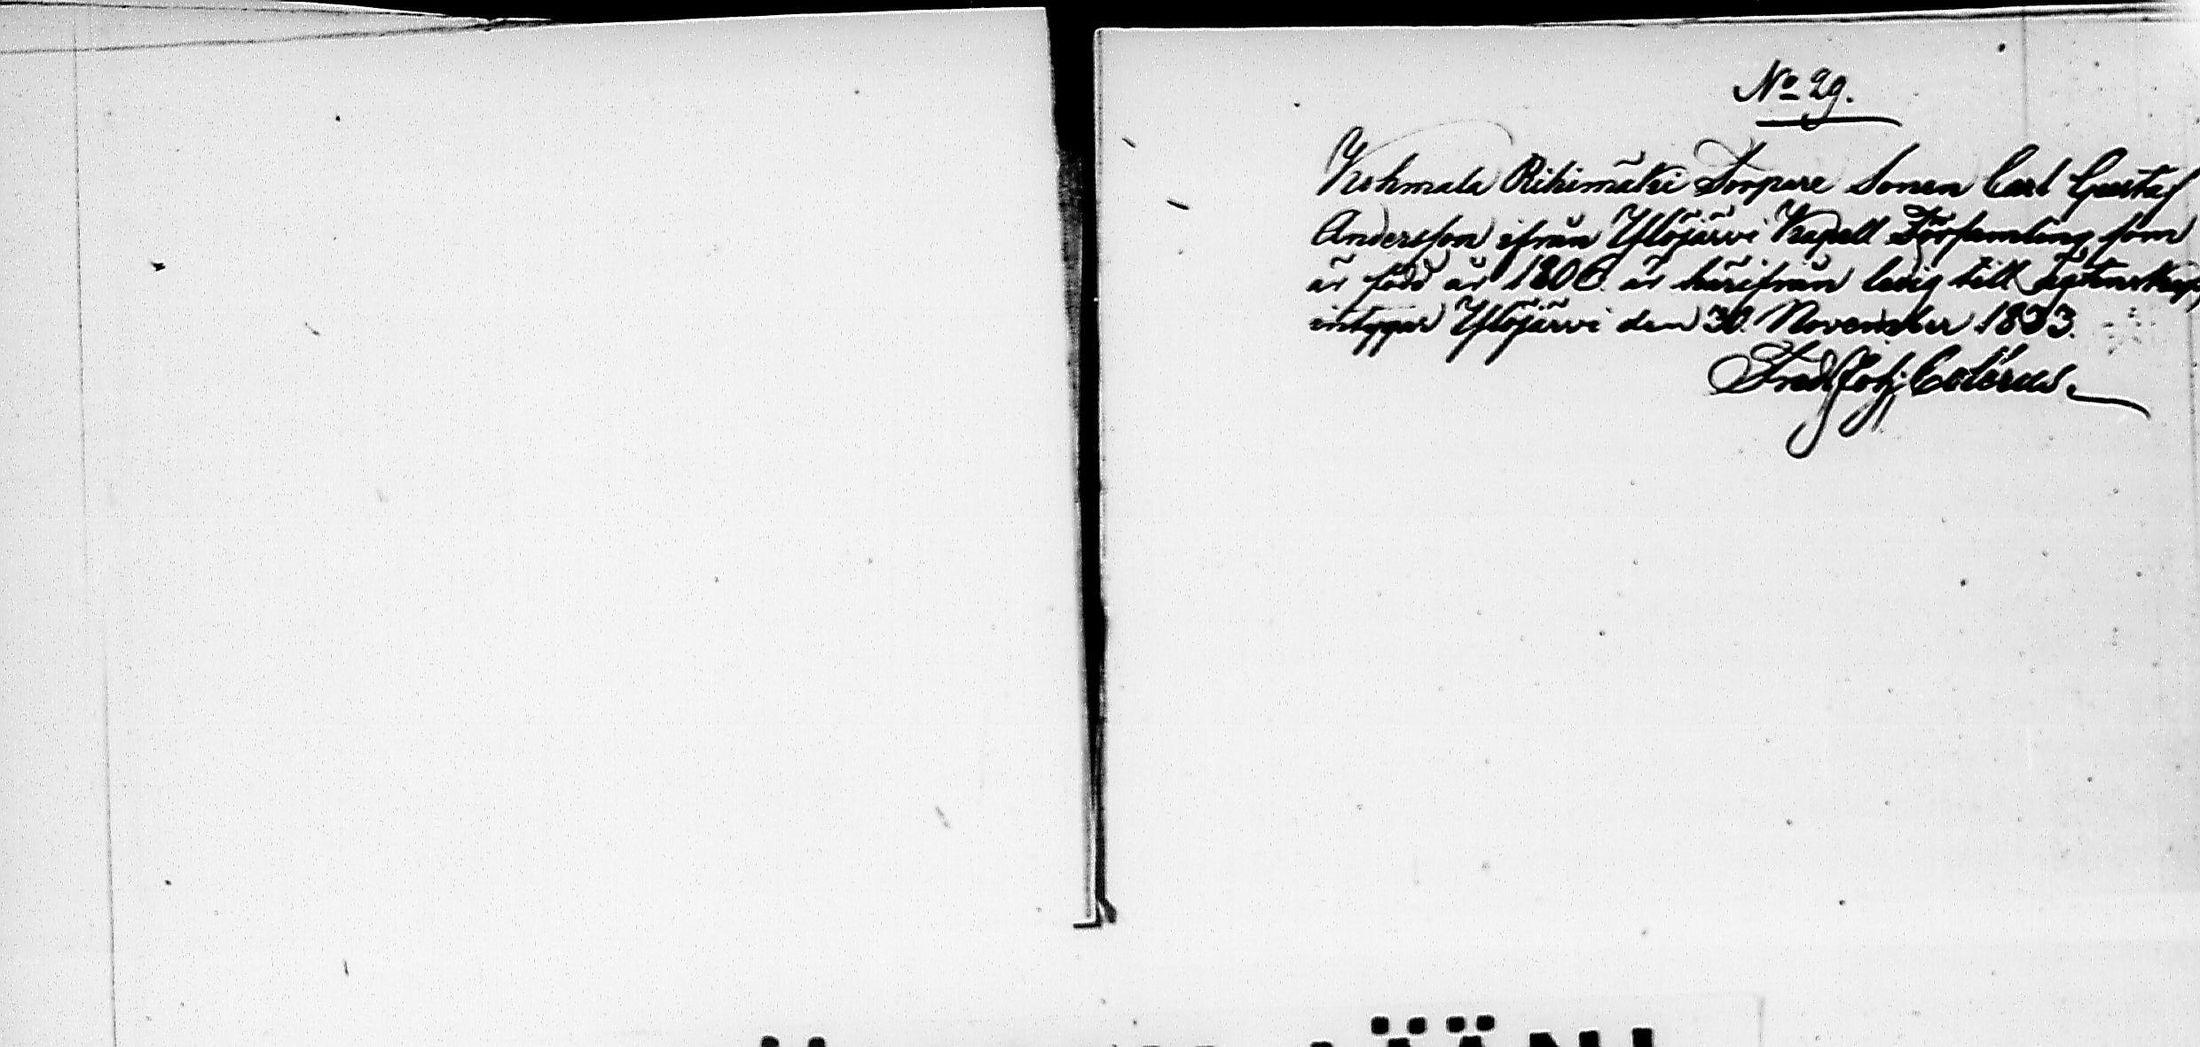 No 29.
Kohmala Rihimäki Torpare Sonen Carl Gustaf
Andersson ifrån Ylöjärvi Kapell Församling, som
är född år 1806 är härifrån ledig till ägtenskap,
intygar Ylöjärvi den 30 November 1833.
Fredr Joh: